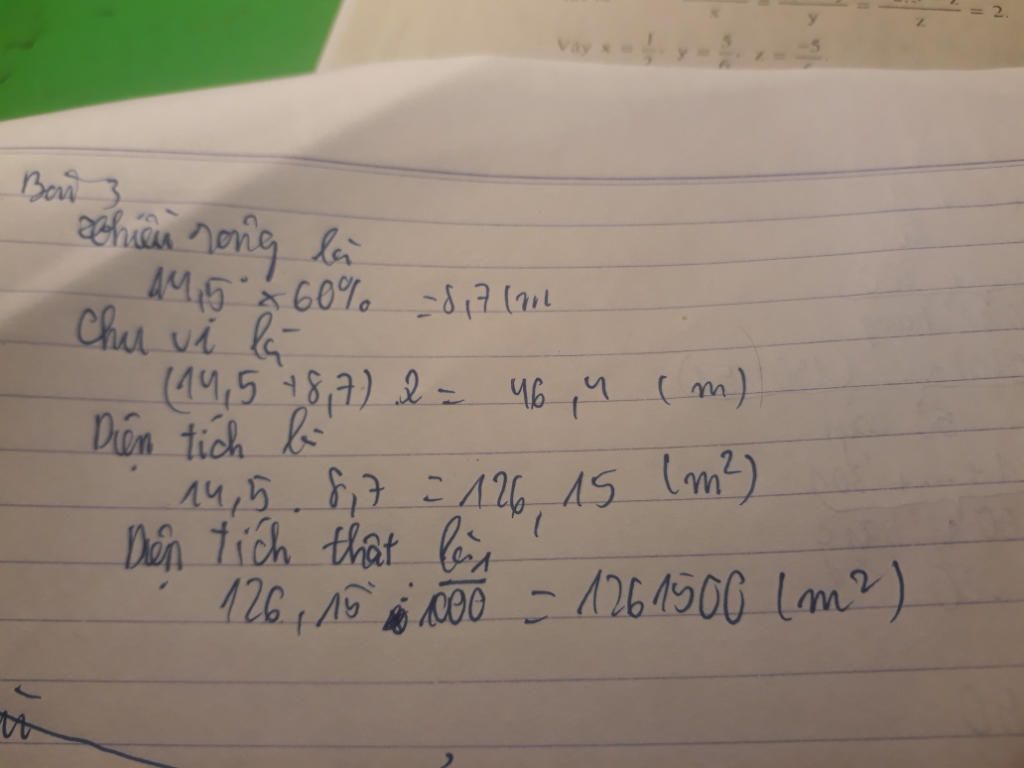 = 2.
x y z
Vậy x = 1/2, y = 5/6, z = -5/
Bài 3
chiều rộng là
14,5 × 60% = 8,7 (m
Chu vi là
(14,5 + 8,7) . 2 = 46,4 (m)
Diện tích là
14,5 . 8,7 = 126,15 (m²)
Diện tích thật là
126,15 : 1/1000 = 1261500 (m²)